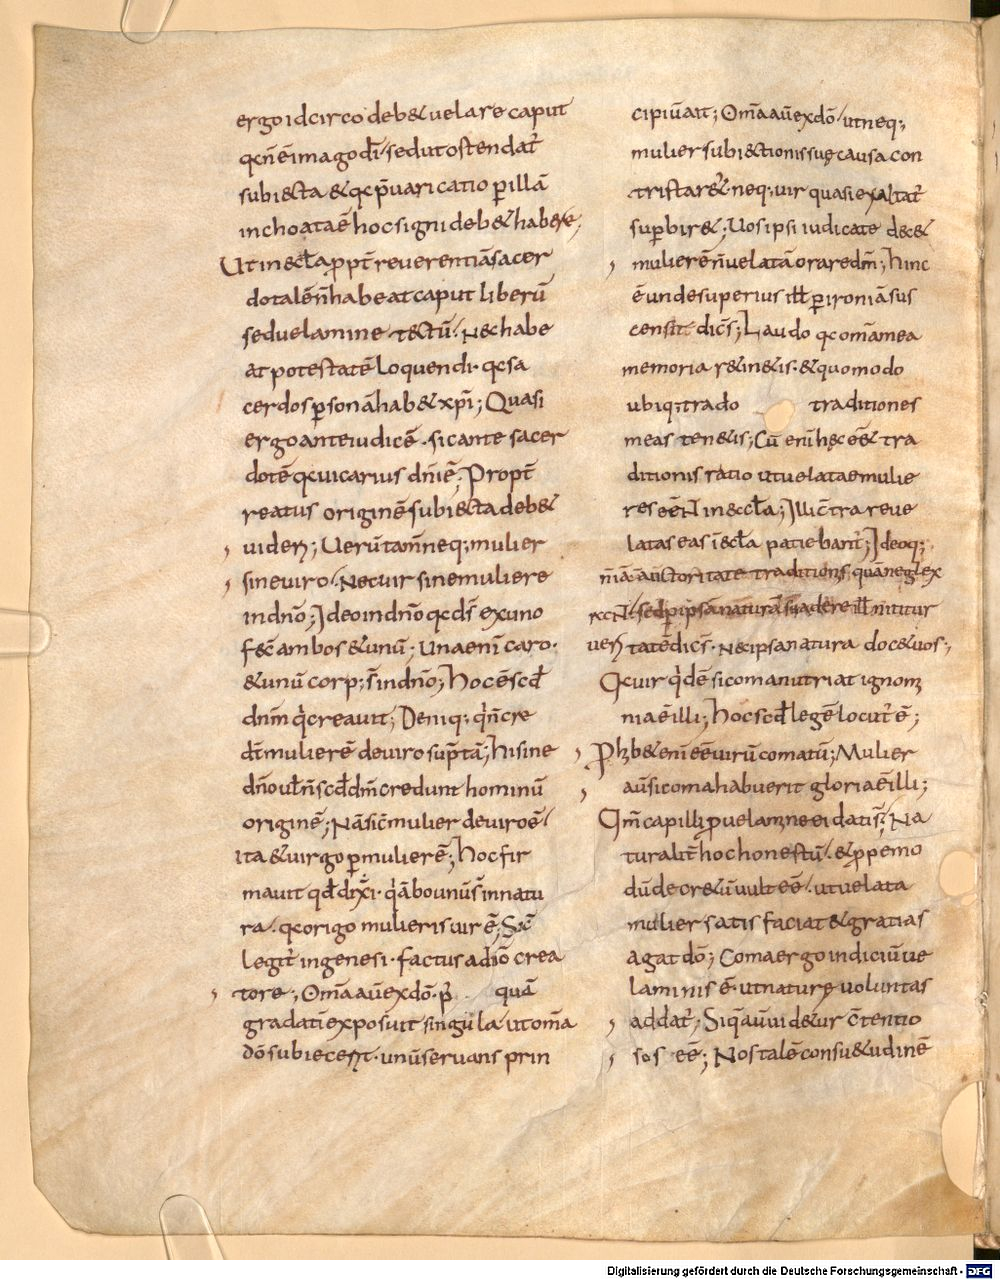 ergo idcirco deb& uelare caput
qc n̄ ē imago dī / sed ut ostendat̄
subi&ta & qc p̄uaricatio p̄ illā
inchoata ē hoc signi deb& habere;
Ut in eccl̄a p̱pt̄ reuerentiā sacer
dotalē n̄ habeat caput liberū
sed uelamine tectū. Nec habe
at potestatē loquendi. qc sa
cerdos p̱sonā hab& xp̄i; Quasi
ergo ante iudicē. sic ante sacer
dotē qc uicarius dn̄i ē; Propt̄
reatus originē subi&ta deb&
uideri; Uerūtam̄ neq; mulier
sine uiro. Nec uir sine muliere
in dn̄o; Ideo in dn̄o qc ds̄ ex uno
fec̄ ambos & unū. Una enī caro.
& unū corp; s̄ in dn̄o; Hoc ē scd̄
dn̄m q̇ creauit; Deniq; q̇ n̄ cre
dt̄ mulierē de uiro sūptā; hi sine
dn̄o ul̄ n̄ scd̄ dm̄ credunt hominū
originē; Nā sic̄ mulier de uiro ē /
ita & uir p̱ mulierē; Hoc fir
mauit qd̄ dixi. q̇ā bo unū s̄ in natu
ra. qc origo mulieris uir ē; Sic̄
legit̄ in genesi. factus a dō crea
tore; Om̄a aū ex dō. p̄ quā
gradatī exposuit singula ut om̄a
dō subiecerit. unū seruans prin
cipiū ait; Om̄a aū ex dō / ut neq;
mulier subi&tionis suę causa con
trist&ur. neq; uir quasi exaltat̄
sup̱bir&; Uos ipsi iudicate dec&
mulierē n̄ uelatā orare dm̄; Hinc
ē unde superius ill̄ p̱ ironiā sus
censit. dic̄s; Laudo qc om̄a mea
memoria r&in&is. & quomodo
ubiq; trado traditiones
meas ten&is; Cū enī hęc eē& tra
ditionis ratio ut uelatae mulie
res eēnt in eccl̄a; Illi c̄tra reue
latas eas ī eccl̄a patiebant̄; Ideoq;
n̄ iā auctoritate traditionis quā neglex
erāt / sed p̱ ipsā naturā suadere ill̄ nititur
ueritatē dic̄s. Nec ipsa natura doc& uos;
Qc uir q̇dē si comā nutriat ignom
nia ē illi; Hoc scd̄ legē locut̄ ē;
Phib& enī eē uirū comatū; Mulier
aū si comā habuerit gloria ē illi;
Qm̄ capilli p̱ uelamine ei dati s̄; Na
turalit̄ hoc honestū. & p̱pemo
dū decr&ū uult eē. ut uelata
mulier satis faciat & gratias
agat dō; Coma ergo indiciū ue
laminis ē. ut naturę uoluntas
addat̄; Siq̇ aū uid&ur c̄tentio
sos eē; Nos talē consu&udinē